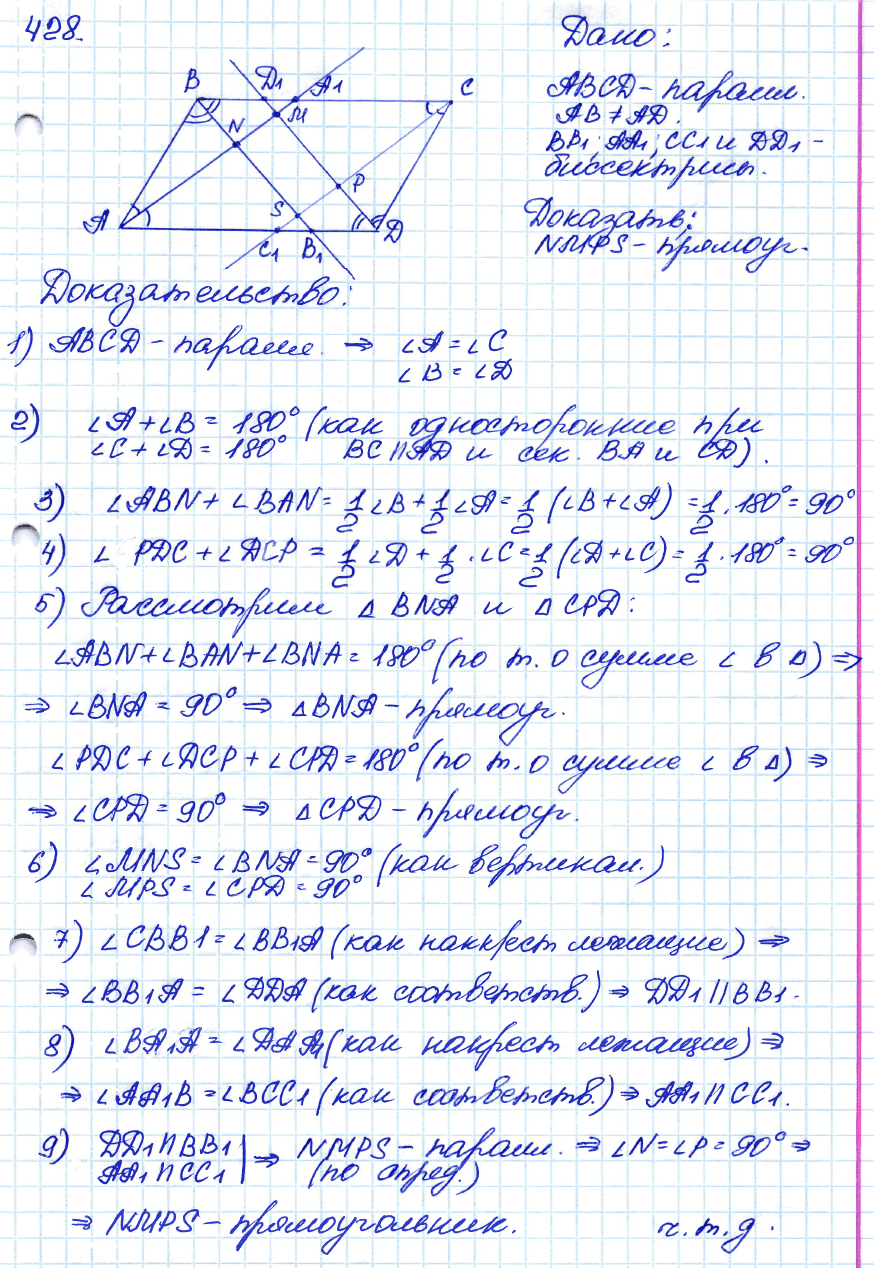 428.
Дано:
ABCD – паралл.
AB ≠ AD.
BB1; AA1; CC1 и DD1 –
биссектрисы.
Доказать:
NMPS – прямоуг.
B D1 A1 C
N M
P
A S D
C1 B1
Доказательство:
1) ABCD – паралл. ⇒ ∠A = ∠C
∠B = ∠D
2) ∠A + ∠B = 180° (как односторонние при
∠C + ∠D = 180° BC || AD и сек. BA и CD).
3) ∠ABN + ∠BAN = 1/2 ∠B + 1/2 ∠A = 1/2 (∠B + ∠A) = 1/2 · 180° = 90°
4) ∠ PDC + ∠DCP = 1/2 ∠D + 1/2 · ∠C = 1/2 (∠D + ∠C) = 1/2 · 180° = 90°
5) Рассмотрим △ BNA и △ CPD:
∠ABN + ∠BAN + ∠BNA = 180° (по т. о сумме ∠ в △) ⇒
⇒ ∠BNA = 90° ⇒ △BNA – прямоуг.
∠PDC + ∠DCP + ∠CPD = 180° (по т. о сумме ∠ в △) ⇒
⇒ ∠CPD = 90° ⇒ △CPD – прямоуг.
6) ∠MNS = ∠BNA = 90° (как вертикал.)
∠MPS = ∠CPD = 90°
7) ∠CBB1 = ∠BB1A (как накрест лежащие) ⇒
⇒ ∠BB1A = ∠DDA (как соответств.) ⇒ DD1 || BB1.
8) ∠BA1A = ∠DAA1 (как накрест лежащие) ⇒
⇒ ∠AA1B = ∠BCC1 (как соответств.) ⇒ AA1 || CC1.
9) DD1 || BB1 | ⇒ NMPS – паралл. ⇒ ∠N = ∠P = 90° ⇒
AA1 || CC1 | (по опред.)
⇒ NMPS – прямоугольник. ч.т.д.